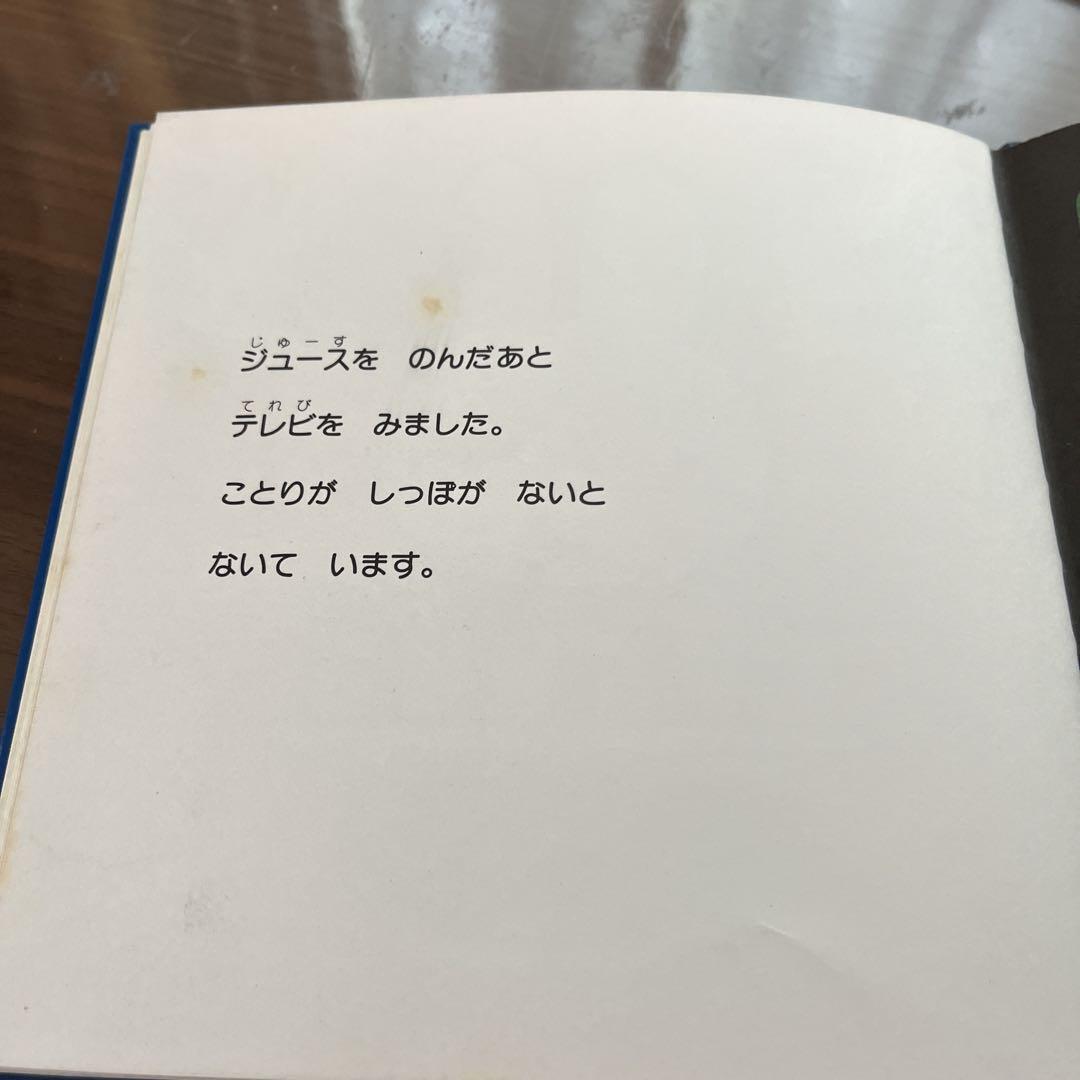 ジュースを　のんだあと
テレビを　みました。
ことりが　しっぽが　ないと
ないて　います。